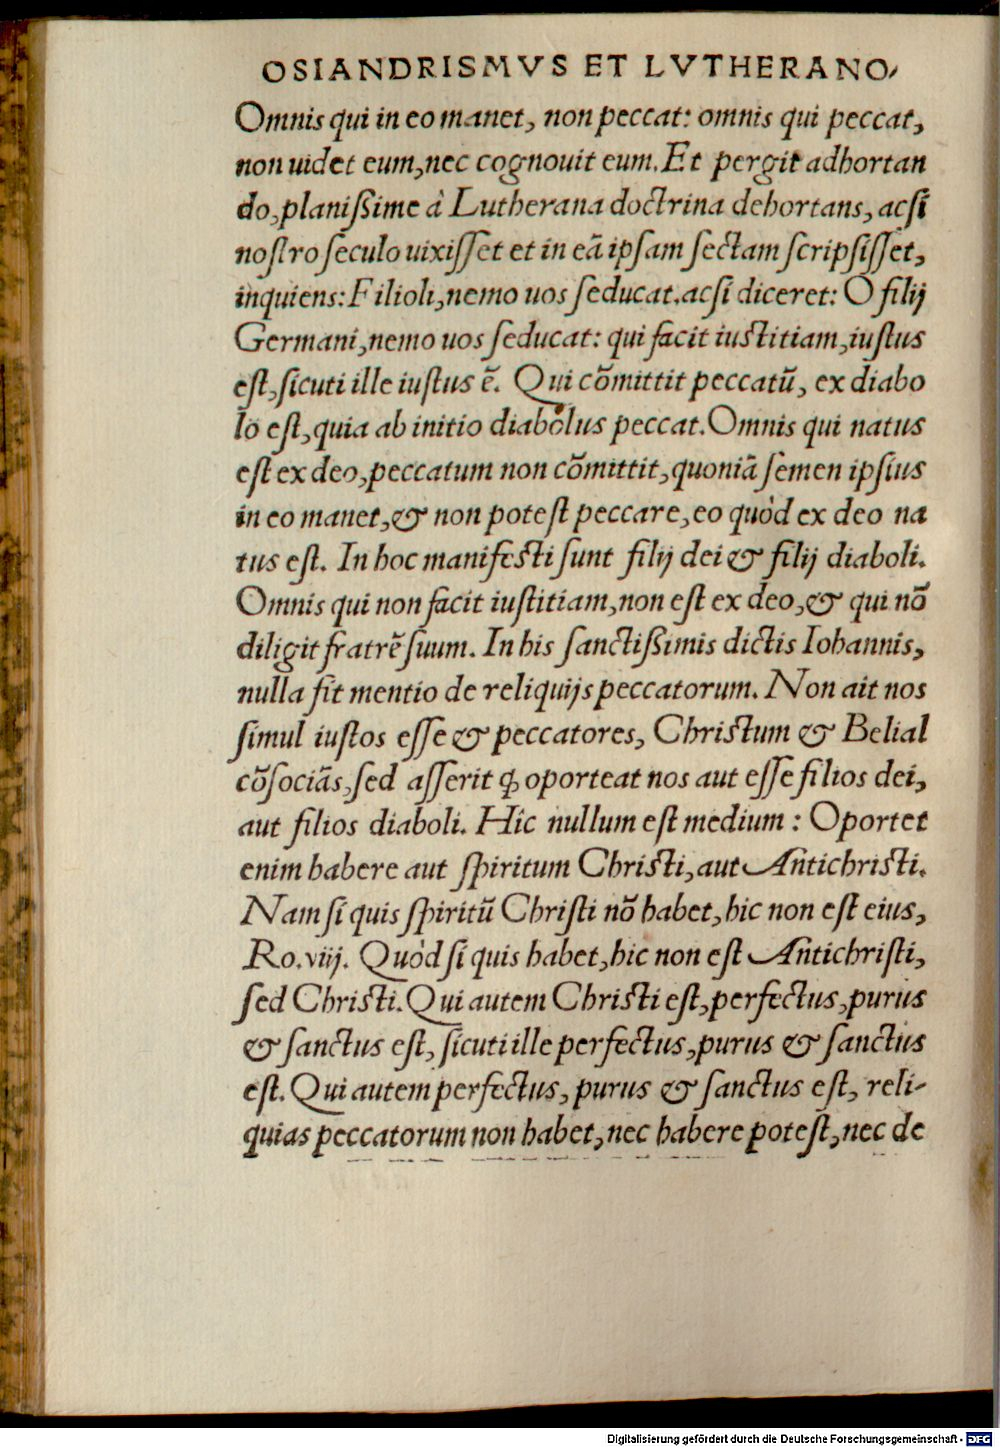 OSIANDRISMVS ET LVTHERANO-
Omnis qui in eo manet, non peccat: omnis qui peccat,
non uidet eum, nec cognouit eum. Et pergit adhortan
do, planißime à Lutherana doctrina dehortans, acsi
nostro seculo uixisset et in eã ipsam sectam scripsisset,
inquiens: Filioli, nemo uos seducat. acsi diceret: O filij
Germani, nemo uos seducat: qui facit iustitiam, iustus
est, sicuti ille iustus ẽ. Qui cõmittit peccatũ, ex diabo
lo est, quia ab initio diabolus peccat. Omnis qui natus
est ex deo, peccatum non cõmittit, quoniã semen ipsius
in eo manet, & non potest peccare, eo quòd ex deo na
tus est. In hoc manifesti sunt filij dei & filij diaboli.
Omnis qui non facit iustitiam, non est ex deo, & qui nõ
diligit fratrẽ suum. In his sanctißimis dictis Iohannis,
nulla fit mentio de reliquijs peccatorum. Non ait nos
simul iustos esse & peccatores, Christum & Belial
cõsociãs, sed asserit ꝙ oporteat nos aut esse filios dei,
aut filios diaboli. Hic nullum est medium: Oportet
enim habere aut spiritum Christi, aut Antichristi.
Nam si quis spiritũ Christi nõ habet, hic non est eius,
Ro. viij. Quòd si quis habet, hic non est Antichristi,
sed Christi. Qui autem Christi est, perfectus, purus
& sanctus est, sicuti ille perfectus, purus & sanctus
est. Qui autem perfectus, purus & sanctus est, reli-
quias peccatorum non habet, nec habere potest, nec de
Digitalisierung gefördert durch die Deutsche Forschungsgemeinschaft - DFG